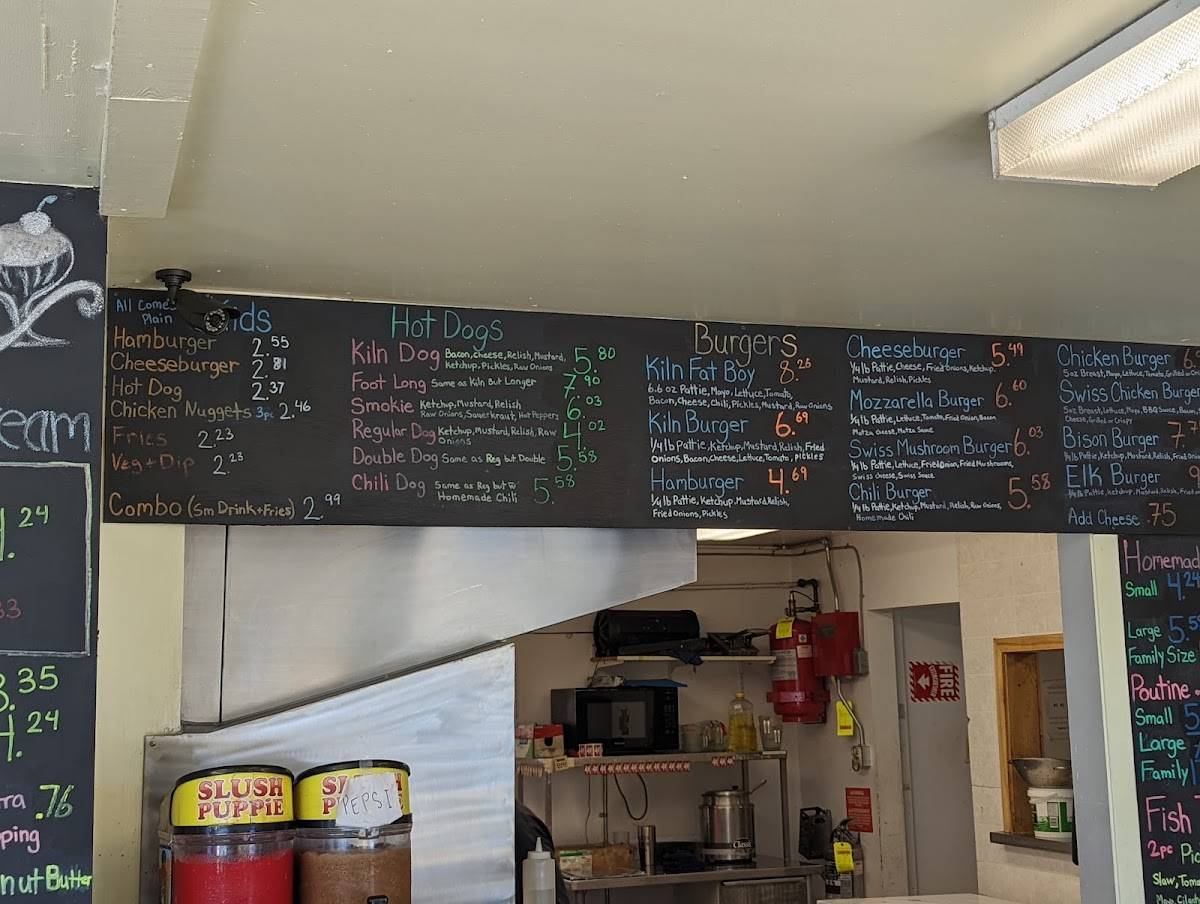 All Comes
Plain
Hamburger 2.55
Cheeseburger 2.81
Hot Dog 2.37
Chicken Nuggets 3pc 2.46
Fries 2.23
Veg + Dip 2.23
Combo (Sm Drink+Fries) 2.99
Hot Dogs
Kiln Dog Bacon, Cheese, Relish, Mustard, 5.80
Ketchup, Pickles, Raw Onions
Foot Long Same as Kiln but Longer 7.90
Smokie Ketchup, Mustard, Relish 6.03
Raw Onions, Sauerkraut, Hot Peppers
Regular Dog Ketchup, Mustard, Relish, Raw 4.02
Onions
Double Dog Same as Reg but Double 5.58
Chili Dog Same as Reg but w 5.58
Homemade Chili
Burgers
Kiln Fat Boy 8.26
6.6 oz Pattie, Mayo, Lettuce, Tomato,
Bacon, Cheese, Chili, Pickles, Mustard, Raw Onions
Kiln Burger 6.69
1/4 lb Pattie, Ketchup, Mustard, Relish, Fried
Onions, Bacon, Cheese, Lettuce, Tomato, Pickles
Hamburger 4.69
1/4 lb Pattie, Ketchup, Mustard, Relish,
Fried Onions, Pickles
Cheeseburger 5.49
1/4 lb Pattie, Cheese, Fried Onions, Ketchup,
Mustard, Relish, Pickles
Mozzarella Burger 6.60
1/4 lb Pattie, Lettuce, Tomato, Fried Onion, Bacon,
Motza Cheese, Motza Sauce
Swiss Mushroom Burger 6.03
1/4 lb Pattie, Lettuce, Fried Onion, Fried Mushrooms,
Swiss Cheese, Swiss Sauce
Chili Burger 5.58
1/4 lb Pattie, Ketchup, Mustard, Relish, Raw Onions,
Homemade Chili
Chicken Burger
5oz Breast, Mayo, Lettuce, Tomato, Grilled or
Swiss Chicken Burger
5oz Breast, Lettuce, Mayo, BBQ Sauce, Bacon,
Cheese, Grilled or Crispy
Bison Burger 7.7
1/4 lb Pattie, Ketchup, Mustard, Relish, Fried
Elk Burger 9
1/4 lb Pattie, Ketchup, Mustard, Relish, Fried
Add Cheese .75
eam
4.24
33
3.35
4.24
.76
ping
nut Butter
Homemad
Small 4.24
Large 5.5
Family Size
Poutine
Small 5
Large
Family
Fish
2pc Pic
Slaw, Toma
SLUSH
PUPPiE
PEPSI
FIRE
Classic